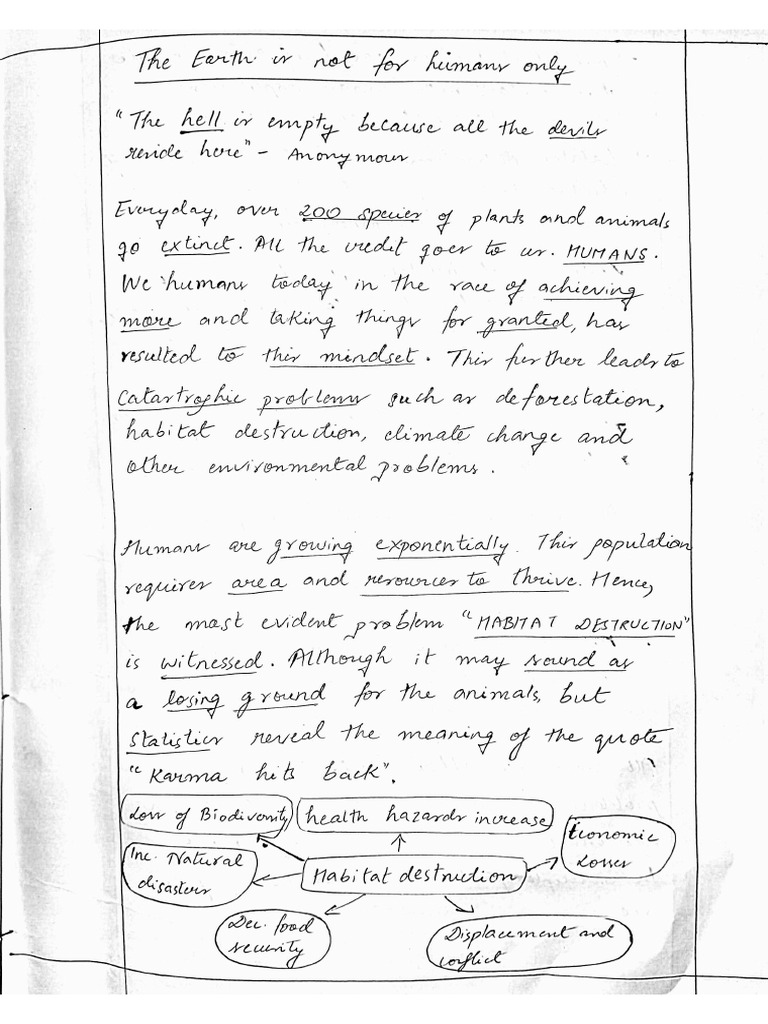 The Earth is not for humans only
"The hell is empty because all the devils
reside here" - Anonymous
Everyday, over 200 species of plants and animals
go extinct. All the credit goes to us. HUMANS.
We humans today in the race of achieving
more and taking things for granted, has
resulted to this mindset. This further leads to
catastrophic problems such as deforestation,
habitat destruction, climate change and
other environmental problems.
Humans are growing exponentially. This population
requires area and resources to thrive. Hence,
the most evident problem "HABITAT DESTRUCTION"
is witnessed. Although it may sound as
a losing ground for the animals, but
statistics reveal the meaning of the quote
"Karma hits back".
Loss of Biodiversity
health hazards increase
Economic
losses
Inc. Natural
disasters
Habitat destruction
Dec. food
security
Displacement and
conflict